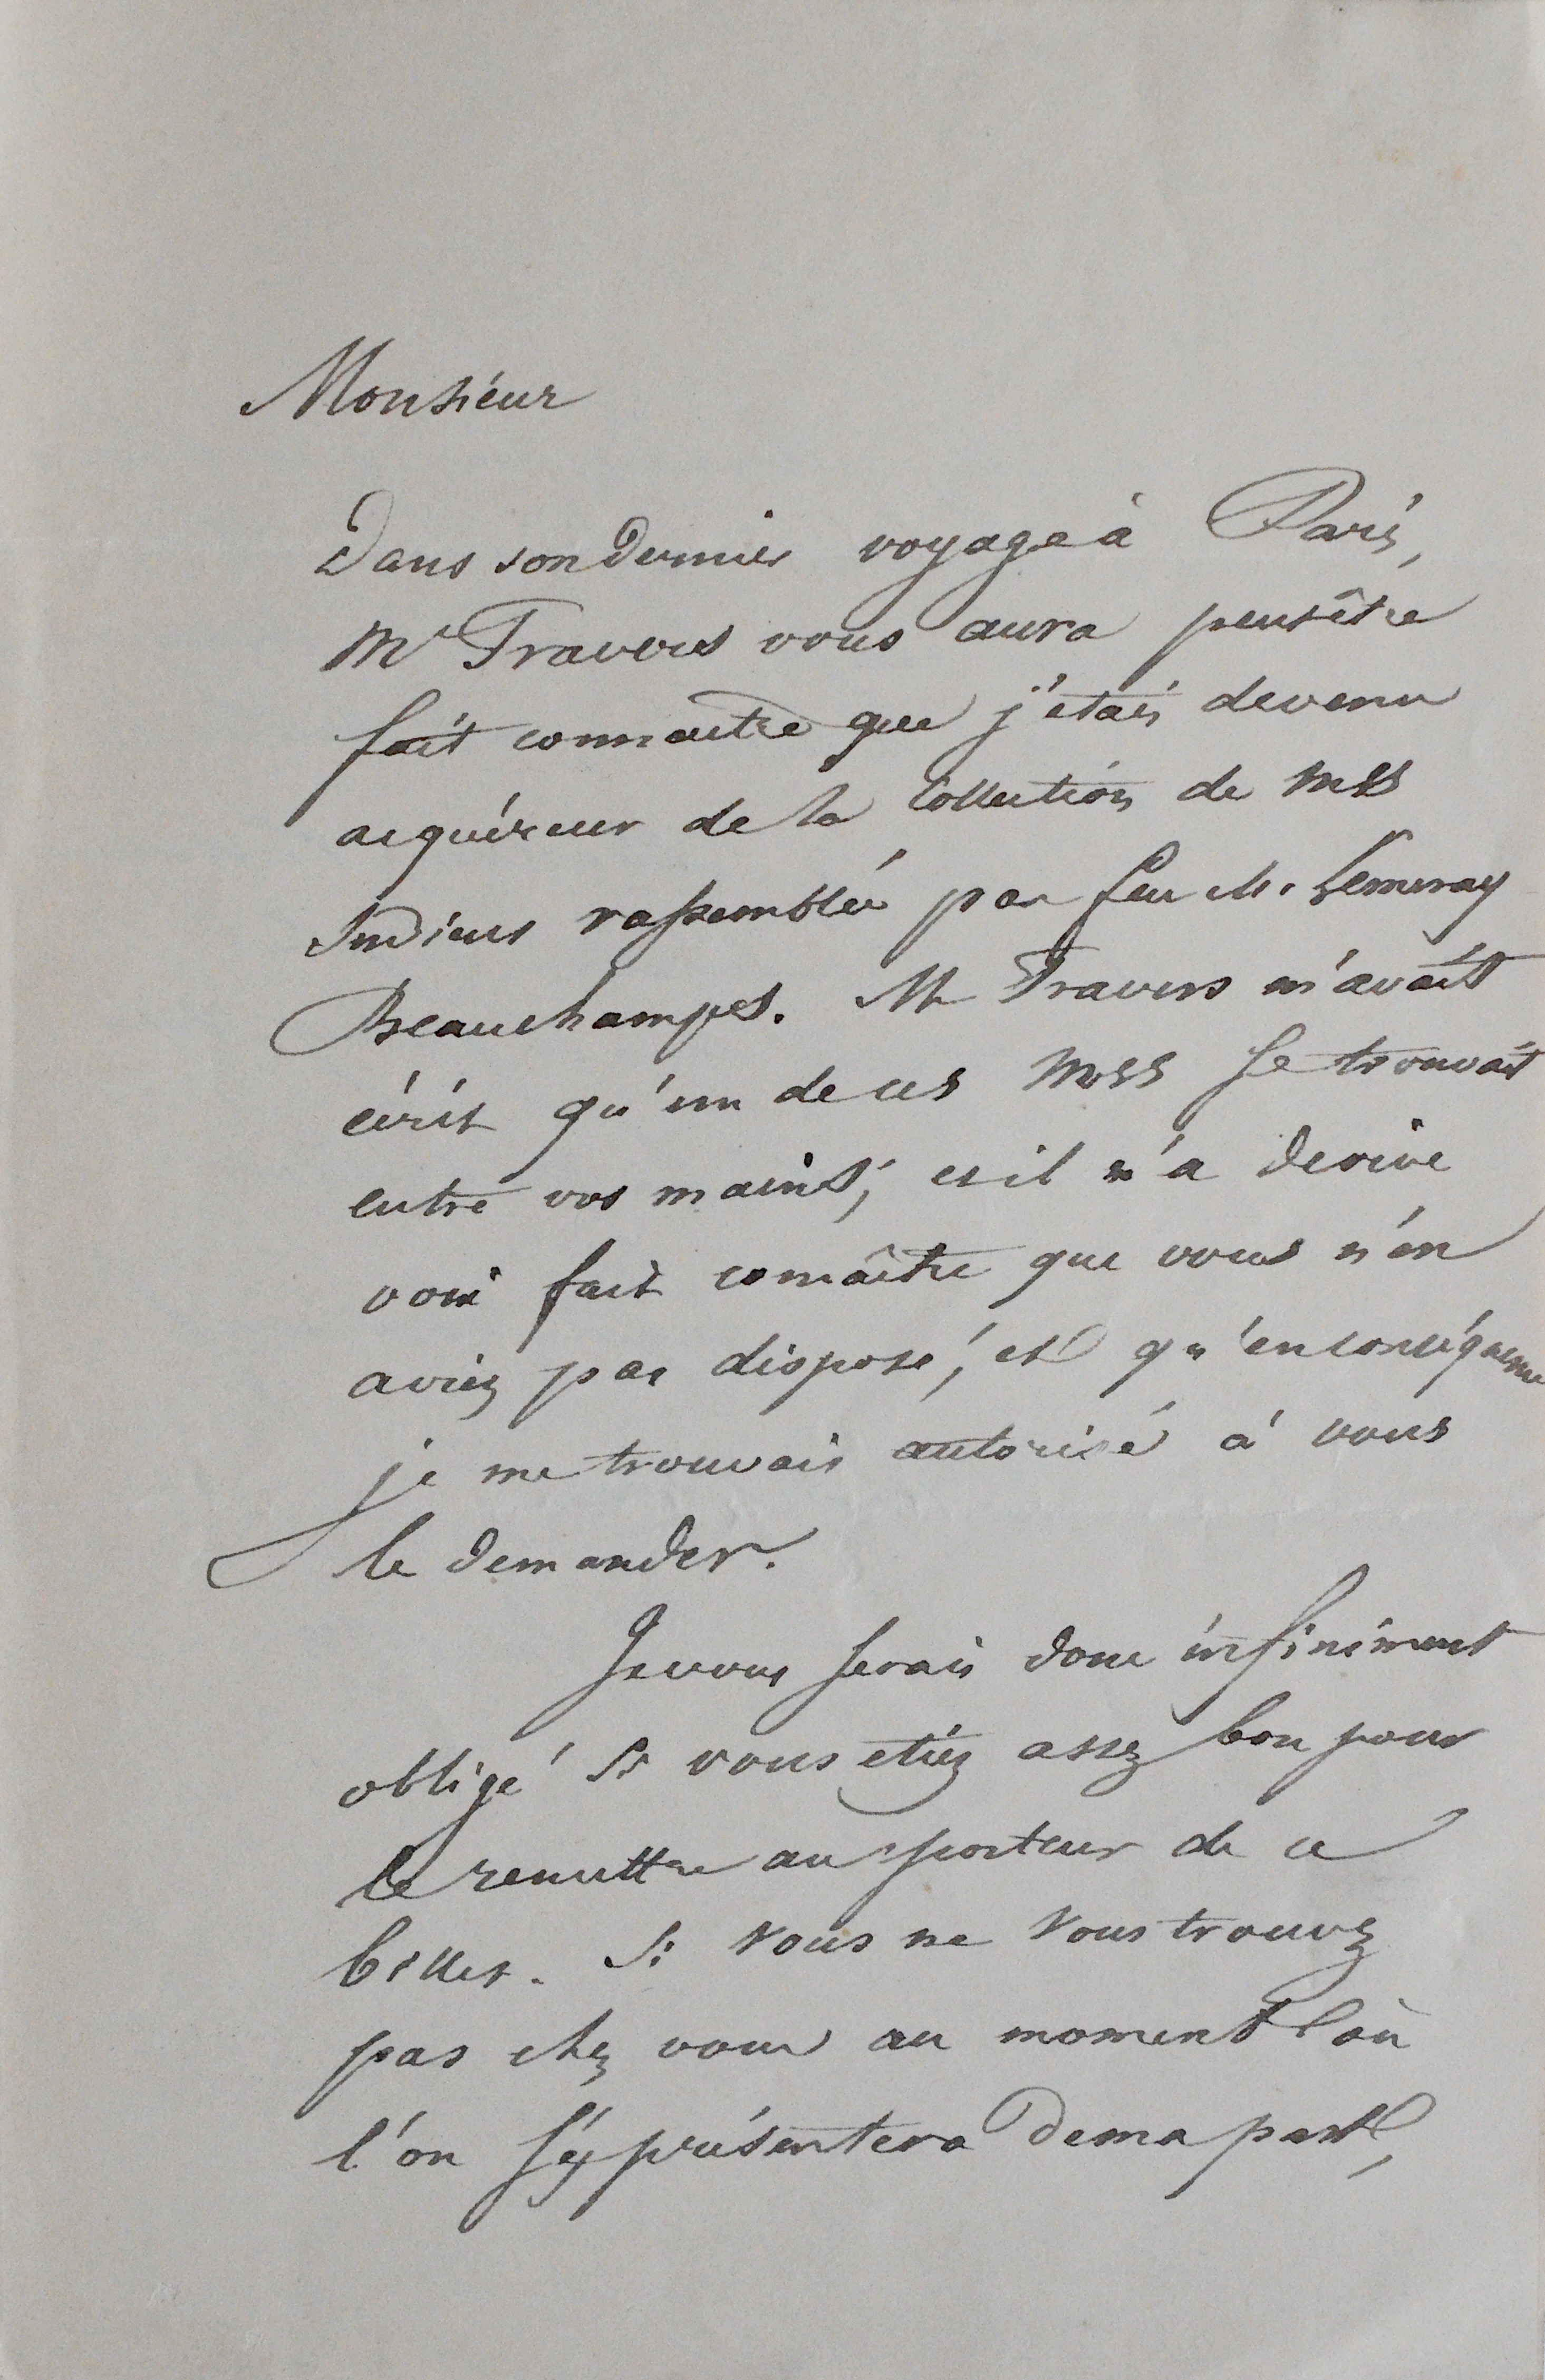 Monsieur
Dans son dernier voyage à Paris,
Mr Travers vous aura peutêtre
fait connaitre que j'étais devenu
acquéreur de la Collection de mss
Indiens rassemblée par feu M. Lemeray
Beauchamps. Mr Travers m'avait
écrit qu'un de ces mss se trouvait
entre vos mains; et il m'a
fait connaître que vous n'en
aviez pas disposé, et qu'en conséquence
je me trouvais autorisé à vous
le demander.
Je vous serais donc infiniment
obligé si vous etiez assez bon pour
le remettre au porteur de ce
billet. Si vous ne vous trouvez
pas chez vous au moment où
l'on s'y présentera de ma part,